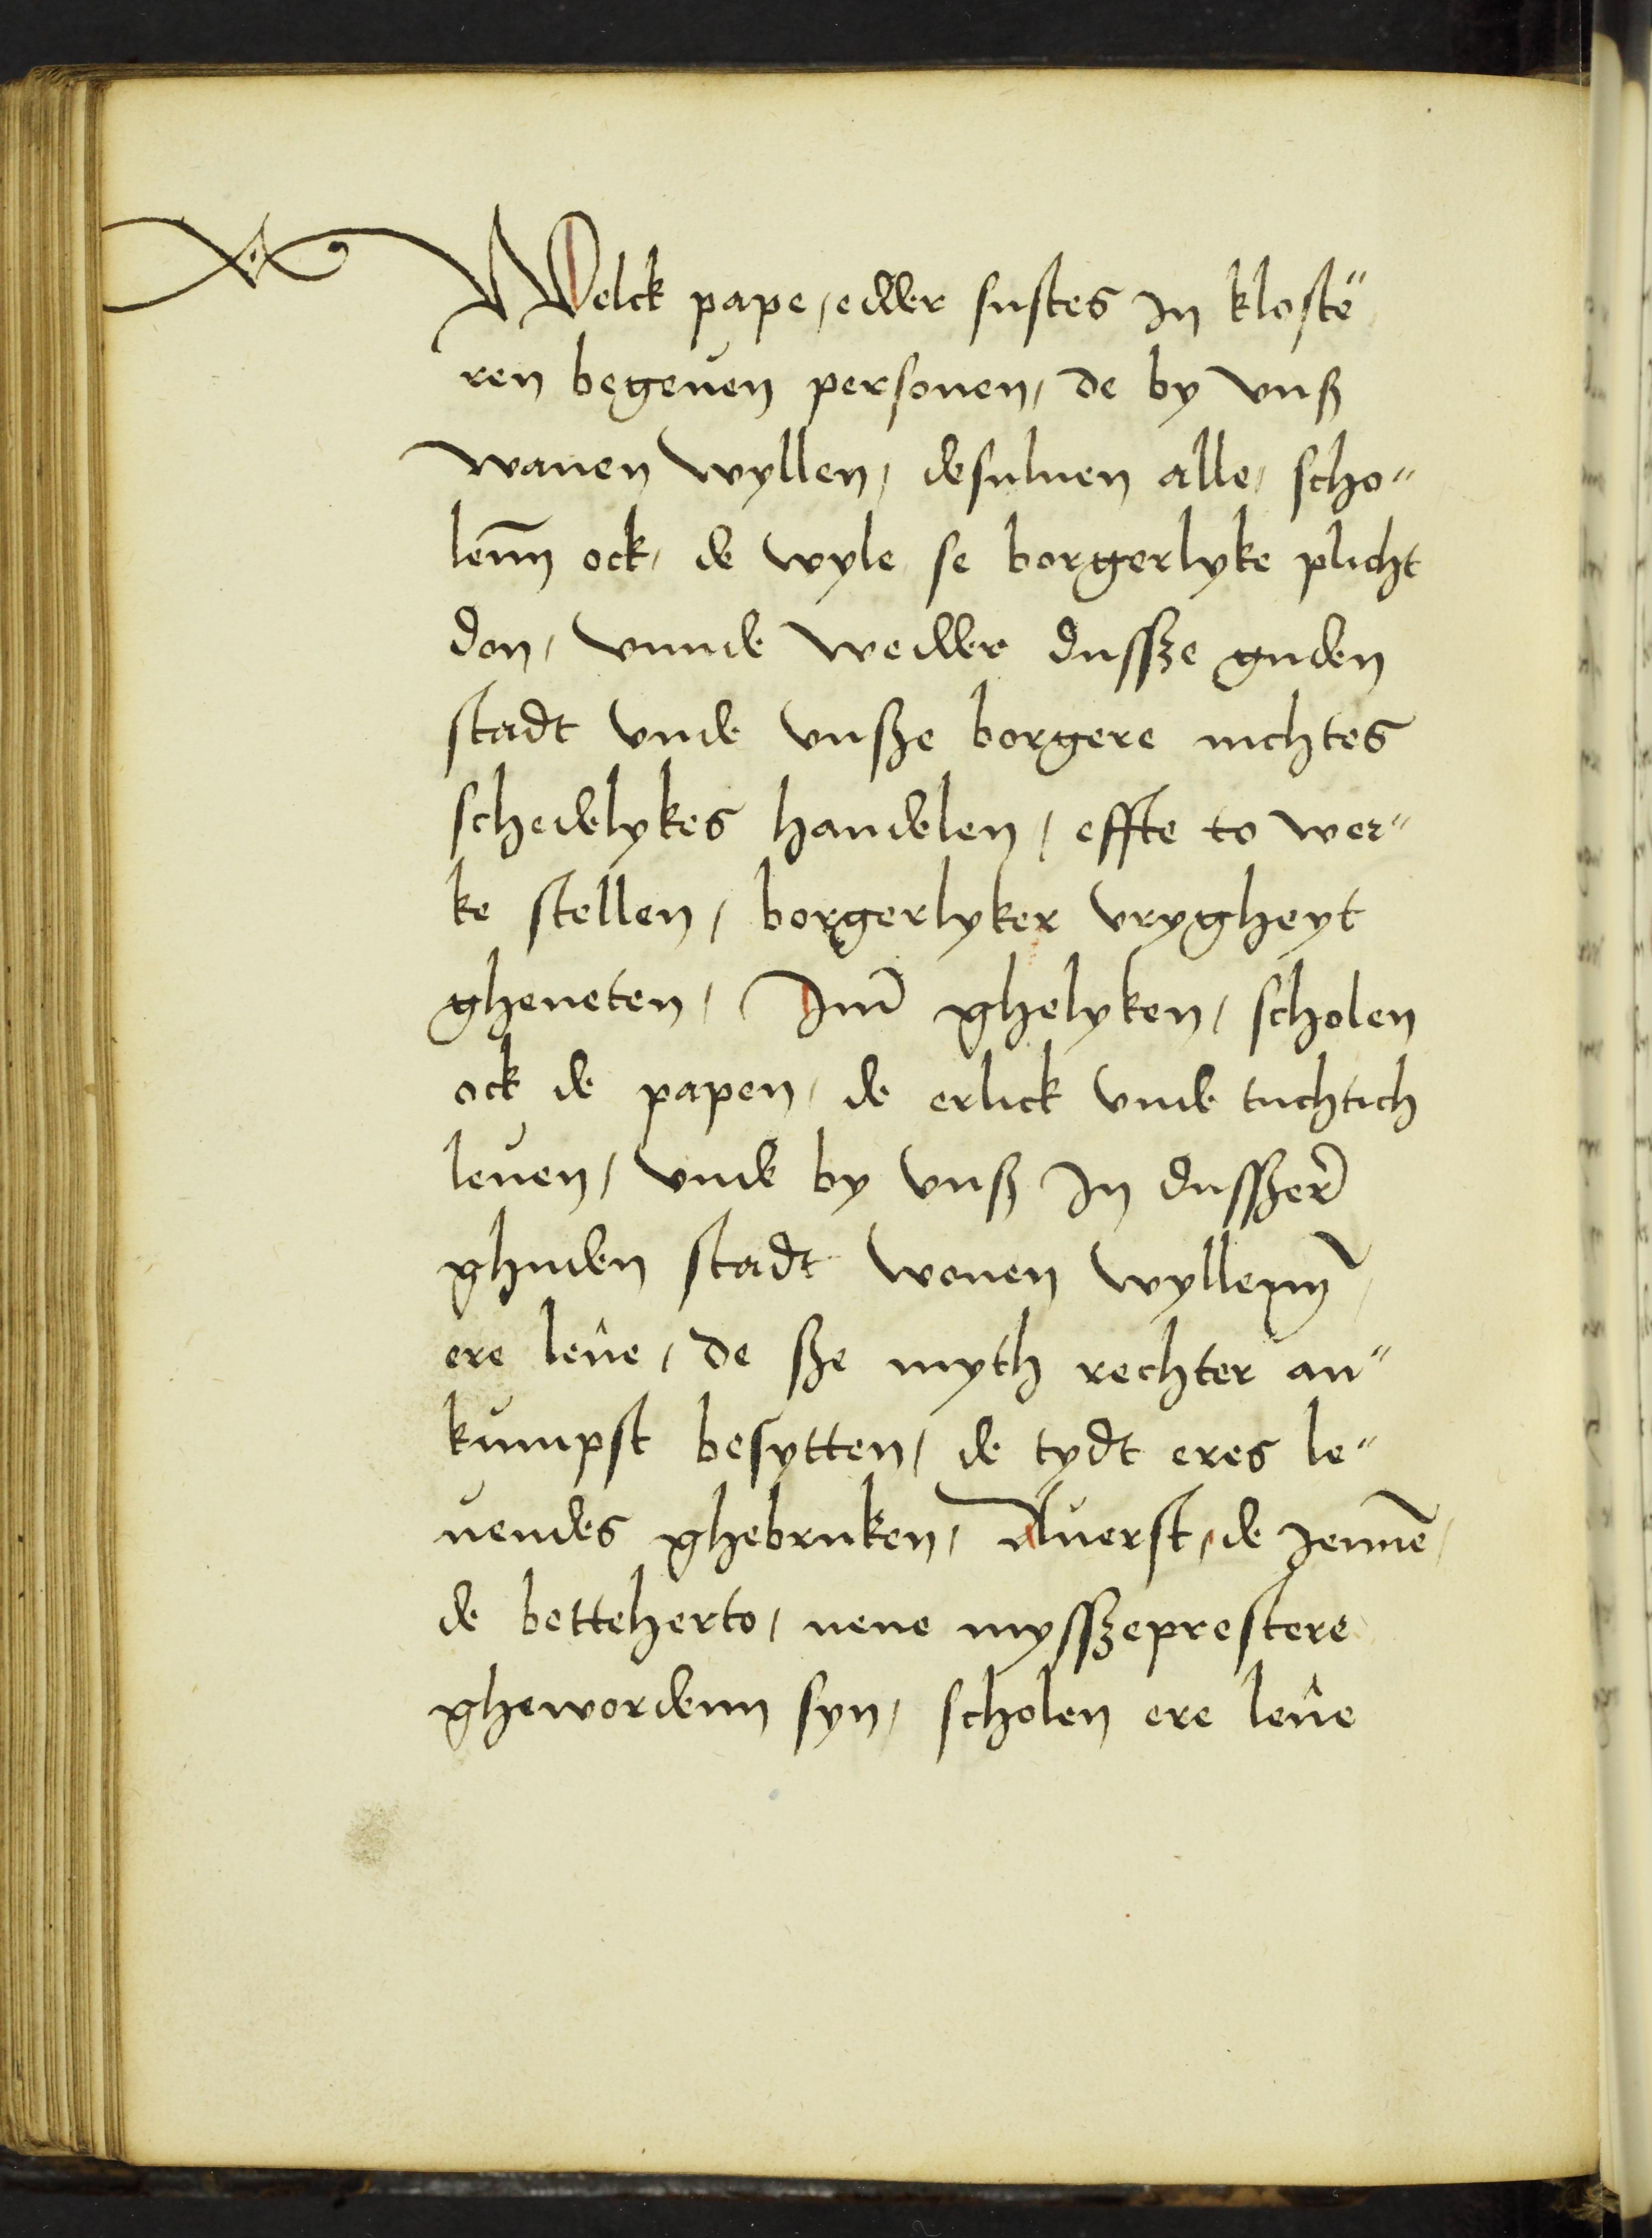 Welck pape, edder sustes in kloste"
ren begeuen personen, de by vnß
wanen wyllen, desuluen alle, scho"
lenn̄ ock, de wyle se borgerlyke plicht
don, vnnde wedder dussze guden
stadt vnde vnsze borgere nichtes
schedelykes handelen, effte to wer"
ke stellen, borgerlyker vrygheyt
gheneten, Jm̄ ghelyken, scholen
ock de papen, de erlick vnde tuchtich
leuen, vnde by vnß in dusszer̄
ghuden stadt wonen wyllenn̄,
ere leûe, de sze myth rechter an"
kumpst besytten, de tydt eres le"
uendes ghebruken, Auerst, de jennē,
de betteherto, nene mysszeprestere
ghewordenn syn, scholen ere leûe